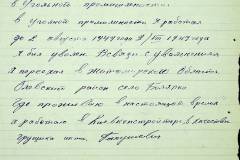 в Угольной промышленности
в угольной промышленности я работал
до 2 августа 1949 года 2/VIII 1949 года
я был уволен. В связи с увольнением
я переехал в Житомирскую область
район село
где проживаю в настоящее время
и работаю в в качестве
грузчика